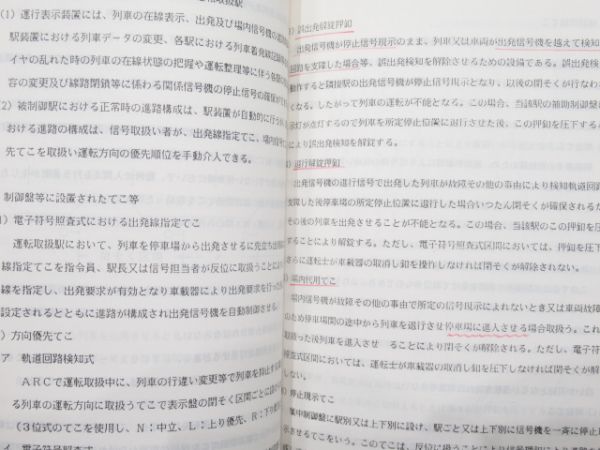 (1) 運行表示装置には、列車の在線表示、出発及び場内信号機の
駅装置における列車データの変更、各駅における列車着発線
イヤの乱れた時の列車の在線状態の把握や運転整理等に伴う各
容の変更及び線路閉鎖等に係わる関係信号機の停止信号の
(2) 被制御駅における正常時の進路構成は、駅装置が自動的に行
おける進路の構成は、信号取扱い者が、出発線指定てこ、場内
先てこを取扱い運転方向の優先順位を手動介入できる。
制御盤等に設置されたてこ等
1) 電子符号照査式における出発線指定てこ
運転取扱駅において、列車を停車場から出発させるに先立ち
線指定てこを指令員、駅長又は信号担当者が反位に取扱うことによ
線を指定し、出発要求が有効となり車載器により出発要求を行っ
設定されるとともに進路が構成され出発信号機を自動制御させる。
) 方向優先てこ
ア 軌道回路検知式
ARCで運転取扱中に、列車の行違い変更等で列車を抑止す
る列車の運転方向に取扱うてこで表示盤の閉そく区間ごとに設
(3位式のてこを使用し、N:中立、L:上り優先、R:下り
イ 電子符号照査式
) 誤出発解錠押釦
出発信号機が停止信号現示のまま、列車又は車両が出発信号機を越えて検知
道回路を支障した場合等、誤出発検知を解除させるための設備である。誤出発検
動作すると隣接駅の出発信号機が停止信号現示となり、以後の閉そくが行なわ
くなる。したがって列車の運転が不能となる。この場合、当該駅の補助制御盤
示灯が点灯するので列車を所定停止位置に退行させた後、この押釦を圧下する
により誤出発検知を解錠する。
) 退行解錠押釦
出発信号機の進行信号で出発した列車が故障その他の事由により検知軌道回
支障した後停車場の所定停止位置に退行した場合いつたん閉そくが確保される
その後の列車を出発させることが不能となる。この場合、当該駅のこの押釦を圧
することにより解錠する。ただし、電子符号照査式区間においては、押釦を圧下
さらに運転士が車載器の取消し釦を操作しなければ閉そくが解除されない。
) 場内代用てこ
場内信号機が故障その他の事由で所定の信号現示によれないとき又は車両故障
のため停車場間の途中から列車を退行させ停車場に進入させる場合取扱う。これ
取扱った後列車を進入させることにより閉そくが解除される。ただし、電子符
検査式区間においては、運転士が車載器の取消し釦を圧下しなければ閉そくが解
) 停止現示てこ
集中制御盤に駅別又は上下別に設け、駅ごと又は上下別に信号機を一斉に停止
示させるてこをいう。このてこは、反位に扱うことにより